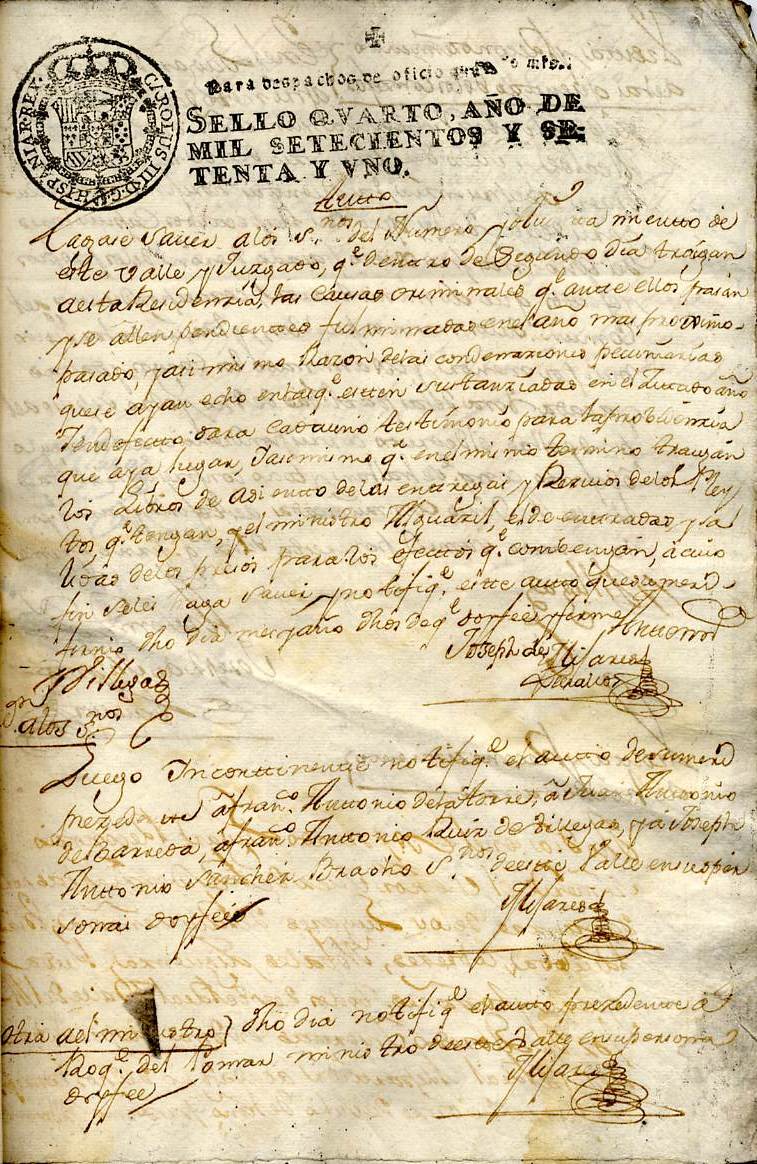 CAROLUS III D G HISPANIAR REX
Para despachos de oficio
SELLO QVARTO, AÑO DE
MIL SETECIENTOS Y SE-
TENTA Y VNO.
Autto
Hagase saver alos s.nos del Numero y de
este Valle y Juzgado, q.e dentro de segundo dia traigan
aesta Residenzia, las causas criminales q.e ante ellos pasan
y se allen pendientes fulminadas en el año mas proximo
pasado, y asi mismo Razon delas condenaziones pecuniarias
que se ayan echo enlas q.e esten sustanziadas en el año
para cada uno testimonio para la probidenzia
que aya lugar, y asi mismo q.e en el mismo termino traygan
los Libros de Asiento delas entregas y
q.e tengan, y el ministro Alguazil, el de entradas y sa
lidas delos presos para los efectos q.e combengan, a cuio
fin seles haga saver y notifiq.e este auto que sumerd
firmo dho dia mes y año dhos de q.e doy fee y firme
Joseph de Antonio
Villegas Mijares
alos s.nos
Luego Incontinenti notifiq.e el auto de sumerd
prezedente a fran.co Anttonio dela torre, a Juan Anttonio
de Barreda, a fran.co Anttonio Ruiz de Villegas, y a Joseph
Anttonio Sanchez Bracho s.nos deeste Valle en sus per
sonas doy fee
Mijares
otra al ministro dho dia notifiq.e el auto prezedente a
Roq.e del Pomar ministro deeste Valle en su persona
doy fee
Mijares